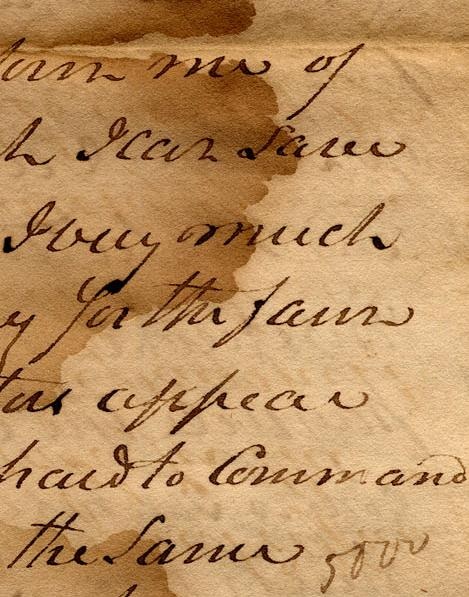 form me of
h I can Save
I vuy much
y for the farm
tors appear
hard to Command
the Same 5000